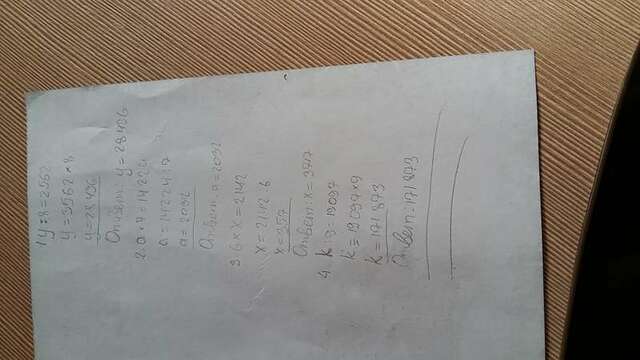 1 y:8=3562
y=3562×8
y=28496
Ответ: y=28496
2. a×7=14224
a=14224:7
a=2032
Ответ: a=2032
3. 6×x=2142
x=2142:6
x=357
Ответ: x=357
4. k:9=19097
k=19097×9
k=171873
Ответ: 171873